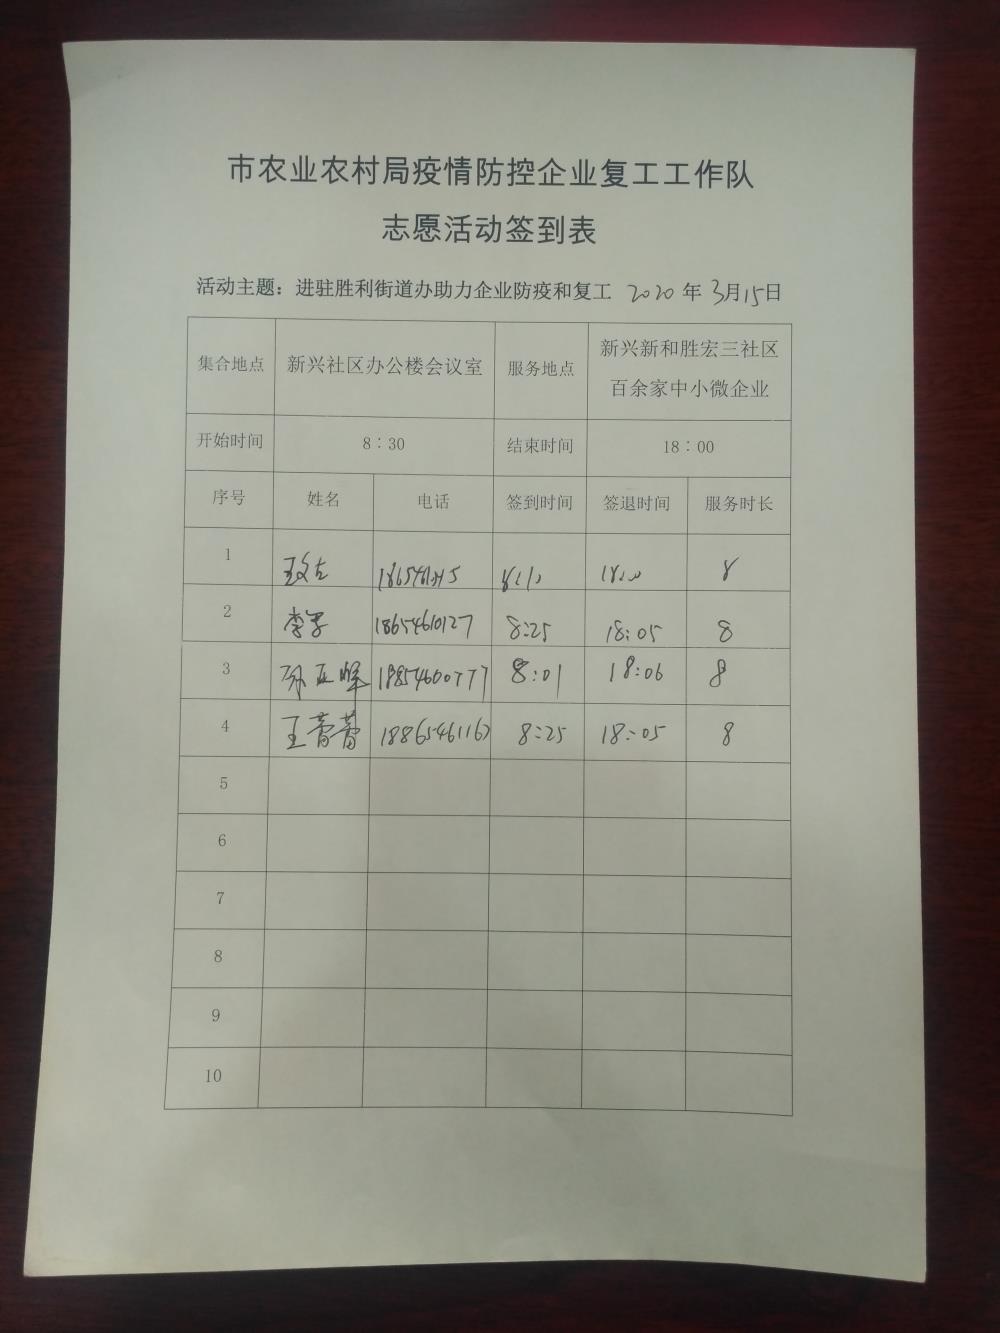 市农业农村局疫情防控企业复工工作队
志愿活动签到表
活动主题：进驻胜利街道办助力企业防疫和复工 2020 年 3月15日
集合地点 新兴社区办公楼会议室 服务地点 新兴新和胜宏三社区
百余家中小微企业
开始时间 8：30 结束时间 18：00
序号 姓名 电话 签到时间 签退时间 服务时长
1 8
2 18654610127 8:25 18:05 8
3 18854600777 8:01 18:06 8
4 王蕾蕾 8:25 18:05 8
5
6
7
8
9
10